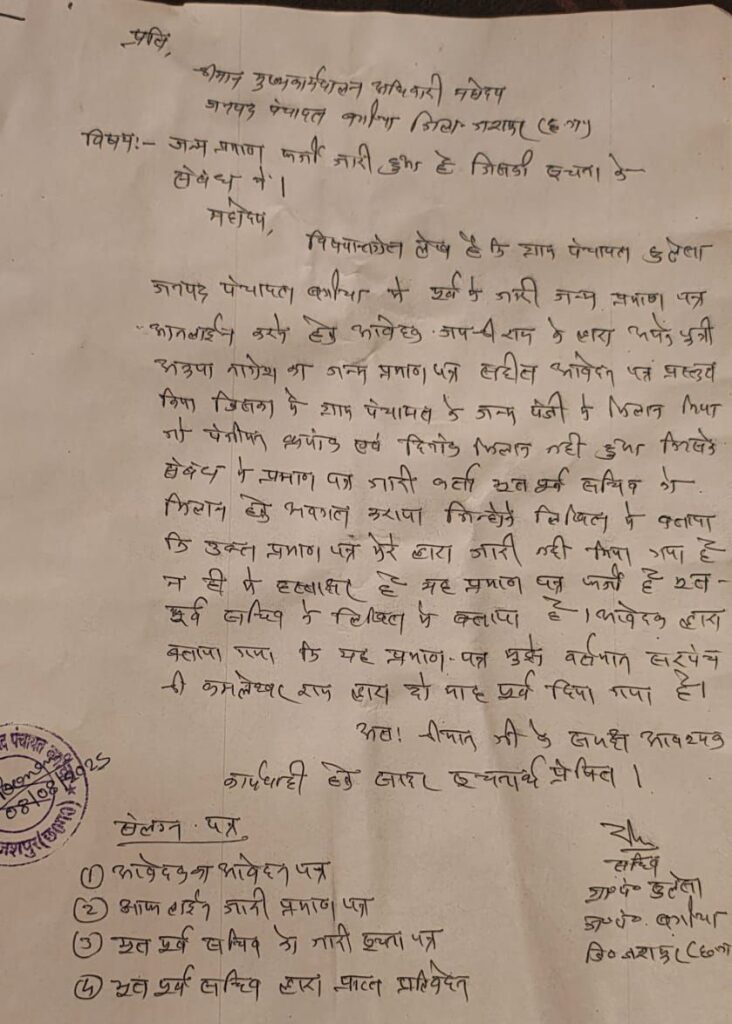 प्रति,
श्रीमान मुख्यकार्यपालन अधिकारी महोदय
जनपद पंचायत बगीचा जिला- जशपुर (छ.ग.)
विषय:- जन्म प्रमाण फर्जी जारी हुआ है जिसकी सूचना के
संबंध में।
महोदय,
विषयान्तर्गत लेख है कि ग्राम पंचायत कुटेला
जनपद पंचायत बगीचा में पूर्व के जारी जन्म प्रमाण पत्र
आनलाईन करने हेतु आवेदक के द्वारा अपने पुत्री
का जन्म प्रमाण पत्र सहित आवेदन पत्र प्रस्तुत
किया जिसका में ग्राम पंचायत के जन्म पंजी में मिलान किया
तो पंजीयन क्रमांक एवं दिनांक मिलान नही हुआ जिसके
संबंध में प्रमाण पत्र जारी कर्ता भूत पूर्व सचिव को
मिलान हेतु अवगत कराया जिन्होंने लिखित में बताया
कि उक्त प्रमाण पत्र मेरे द्वारा जारी नही किया गया है
न ही मेरे हस्ताक्षर है यह प्रमाण पत्र फर्जी है भूत-
पूर्व सचिव के लिखित में बताया है। आवेदक द्वारा
बताया गया कि यह प्रमाण-पत्र मुझे वर्तमान सरपंच
श्री कमलेश्वर राम द्वारा दो माह पूर्व दिया गया है।
अतः श्रीमान जी के समक्ष आवश्यक
कार्यवाही हेतु सादर सूचनार्थ प्रेषित।
08/08/2025
संलग्न पत्र
① आवेदक का आवेदन पत्र
② आन लाईन जारी प्रमाण पत्र
③ भूत पूर्व सचिव को जारी सूचना पत्र
④ भूत पूर्व सचिव द्वारा प्राप्त प्रतिवेदन
सचिव
ग्रा॰पं॰ कुटेला
ज॰पं॰ बगीचा
जि॰ जशपुर (छ.ग.